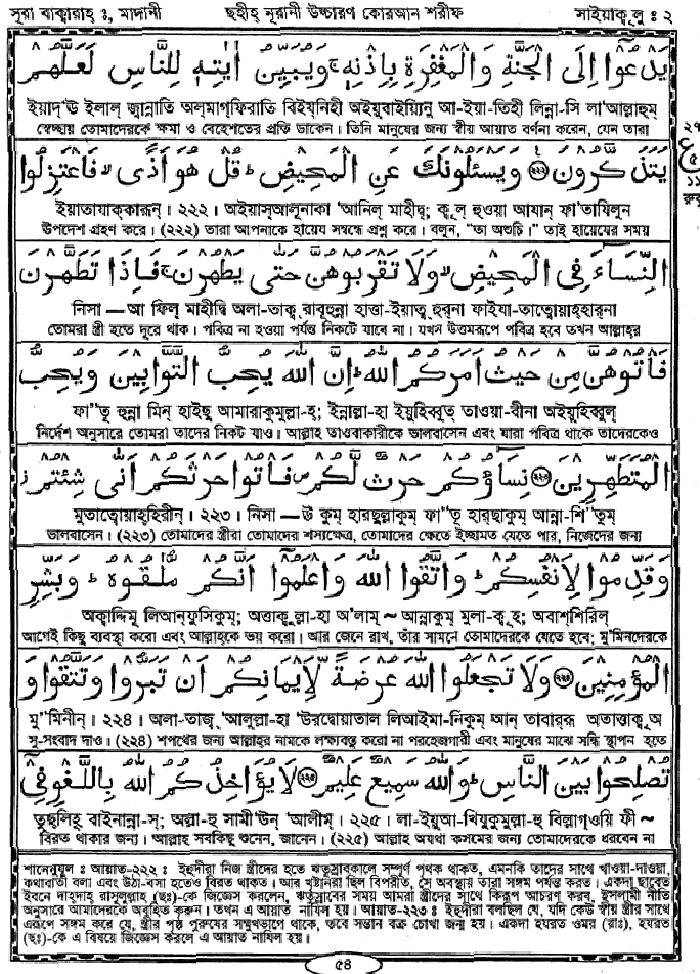 সূরা বাক্বারাহ্ ঃ, মাদানী ছহীহ্ নূরানী উচ্চারণ কোরআন শরীফ সাইয়াকূলু ঃ ২
يَدْعُوْٓا اِلَى الْجَنَّةِ وَالْمَغْفِرَةِ بِاِذْنِهٖ ۚ وَيُبَيِّنُ اٰيٰتِهٖ لِلنَّاسِ لَعَلَّهُمْ
ইয়াদ্'ঊ ইলাল্ জ্বান্নাতি অল্মাগ্ফিরাতি বিইয্নিহী অইয়ুবাইয়্যিনু আ-ইয়া-তিহী লিন্না-সি লা'আল্লাহুম্
স্বেচ্ছায় তোমাদেরকে ক্ষমা ও বেহেশতের প্রতি ডাকেন। তিনি মানুষের জন্য স্বীয় আয়াত বর্ণনা করেন, যেন তারা
يَتَذَكَّرُوْنَ ۝٢٢١ وَيَسْـَٔلُوْنَكَ عَنِ الْمَحِيْضِ ؕ قُلْ هُوَ اَذًى ۙ فَاعْتَزِلُوا
ইয়াতাযাক্কারূন্। ২২২। অইয়াস্আলূনাকা 'আনিল্ মাহীদ্ব্; ক্বুল্ হুওয়া আযান্ ফা'তাযিলুন
উপদেশ গ্রহণ করে। (২২২) তারা আপনাকে হায়েয সম্বন্ধে প্রশ্ন করে। বলুন, "তা অশুচি।" তাই হায়েযের সময়
النِّسَآءَ فِى الْمَحِيْضِ ۙ وَلَا تَقْرَبُوْهُنَّ حَتّٰى يَطْهُرْنَ ۚ فَاِذَا تَطَهَّرْنَ
নিসা — আ ফিল্ মাহীদ্বি অলা-তাক্ব্ রাবূহুন্না হাত্তা-ইয়াত্ব্ হুর্না ফাইযা-তাত্বোয়াহ্হার্না
তোমরা স্ত্রী হতে দূরে থাক। পবিত্র না হওয়া পর্যন্ত নিকটে যাবে না। যখন উত্তমরূপে পবিত্র হবে তখন আল্লাহর
فَاْتُوْهُنَّ مِنْ حَيْثُ اَمَرَكُمُ اللّٰهُ ؕ اِنَّ اللّٰهَ يُحِبُّ التَّوَّابِيْنَ وَيُحِبُّ
ফা"তূ হুন্না মিন্ হাইছু আমারাকুমুল্লা-হ্; ইন্নাল্লা-হা ইয়ুহিব্বুত্ তাওয়া-বীনা অইয়ুহিব্বুল্
নির্দেশ অনুসারে তোমরা তাদের নিকট যাও। আল্লাহ তাওবাকারীকে ভালবাসেন এবং যারা পবিত্র থাকে তাদেরকেও
الْمُتَطَهِّرِيْنَ ۝٢٢٢ نِسَآؤُكُمْ حَرْثٌ لَّكُمْ ۪ فَاْتُوْا حَرْثَكُمْ اَنّٰى شِئْتُمْ ز
মুতাত্বোয়াহ্হিরীন্। ২২৩। নিসা — উ কুম্ হারছুল্লাকুম্ ফা"তূ হার্ছাকুম্ আন্না-শি"তুম্
ভালবাসেন। (২২৩) তোমাদের স্ত্রীরা তোমাদের শস্যক্ষেত্র, তোমাদের ক্ষেতে ইচ্ছামত যেতে পার, নিজেদের জন্য
وَقَدِّمُوْا لِاَنْفُسِكُمْ ؕ وَاتَّقُوا اللّٰهَ وَاعْلَمُوْٓا اَنَّكُمْ مُّلٰقُوْهُ ؕ وَبَشِّرِ
অক্বাদ্দিমূ লিআন্ফুসিকুম্; অত্তাক্বুল্লা-হা অ'লাম্ ~ আন্নাকুম্ মুলা-ক্বূ হ্; অবাশ্শিরিল্
আগেই কিছু ব্যবস্থা করো এবং আল্লাহকে ভয় করো। আর জেনে রাখ, তাঁর সামনে তোমাদেরকে যেতে হবে; মু'মিনদেরকে
الْمُؤْمِنِيْنَ ۝٢٢٣ وَلَا تَجْعَلُوا اللّٰهَ عُرْضَةً لِّاَيْمَانِكُمْ اَنْ تَبَرُّوْا وَتَتَّقُوْا وَ
মু"মিনীন্। ২২৪। অলা-তাজ্ব্ 'আলুল্লা-হা 'উরদ্বোয়াতাল্ লিআইমা-নিকুম্ আন্ তাবার্রূ অতাত্তাক্বূ অ
সু-সংবাদ দাও। (২২৪) শপথের জন্য আল্লাহর নামকে লক্ষ্যবস্তু করো না পরহেজগারী এবং মানুষের মাঝে সন্ধি স্থাপন হতে
تُصْلِحُوْا بَيْنَ النَّاسِ ؕ وَاللّٰهُ سَمِيْعٌ عَلِيْمٌ ۝٢٢٤ لَا يُؤَاخِذُكُمُ اللّٰهُ بِاللَّغْوِ فِىْٓ
তুছ্লিহূ বাইনান্না-স্; অল্লা-হু সামী'উন্ 'আলীম্। ২২৫। লা-ইয়ুআ-খিযুকুমুল্লা-হু বিল্লাগ্ওয়ি ফী ~
বিরত থাকার জন্য। আল্লাহ সবকিছু শুনেন, জানেন। (২২৫) আল্লাহ অযথা কসমের জন্য তোমাদেরকে ধরবেন না
শানেনুযুল ঃ আয়াত-২২২ ঃ ইহুদীরা নিজ স্ত্রীদের হতে ঋতুস্রাবকালে সম্পূর্ণ পৃথক থাকত, এমনকি তাদের সাথে খাওয়া-দাওয়া,
কথাবার্তা বলা এবং উঠা-বসা হতেও বিরত থাকত। আর খৃষ্টানরা ছিল বিপরীত, সে অবস্থায় তারা সঙ্গম পর্যন্ত করত। একদা ছাবেত
ইবনে দাহ্দাহ্ রাসূলুল্লাহ (ছঃ)-কে জিজ্ঞেস করলেন, ঋতুস্রাবের সময় আমরা স্ত্রীদের সাথে কিরূপ আচরণ করব, ইসলামী নীতি
অনুসারে আমাদেরকে অবহিত করুন। তখন এ আয়াত নাযিল হয়। আয়াত-২২৩ ঃ ইহুদীরা বলছিল যে, যদি কেউ স্বীয় স্ত্রীর সাথে
এরূপে সঙ্গম করে যে, স্ত্রীর পৃষ্ঠ পুরুষের সম্মুখভাগে থাকে, তবে সন্তান বক্র চোখা জন্ম হয়। একদা হযরত ওমর (রাঃ), হযরত
(ছঃ)-কে এ বিষয়ে জিজ্ঞেস করলে এ আয়াত নাযিল হয়।
৫৪